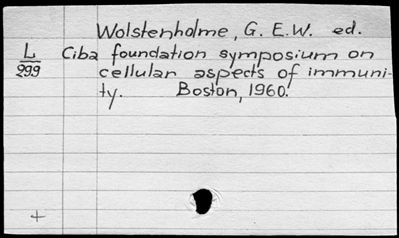 Wolstenholme, G. E.W. ed.
L
299
Ciba foundation symposium on
cellular aspects of immuni-
ty. Boston, 1960.
+